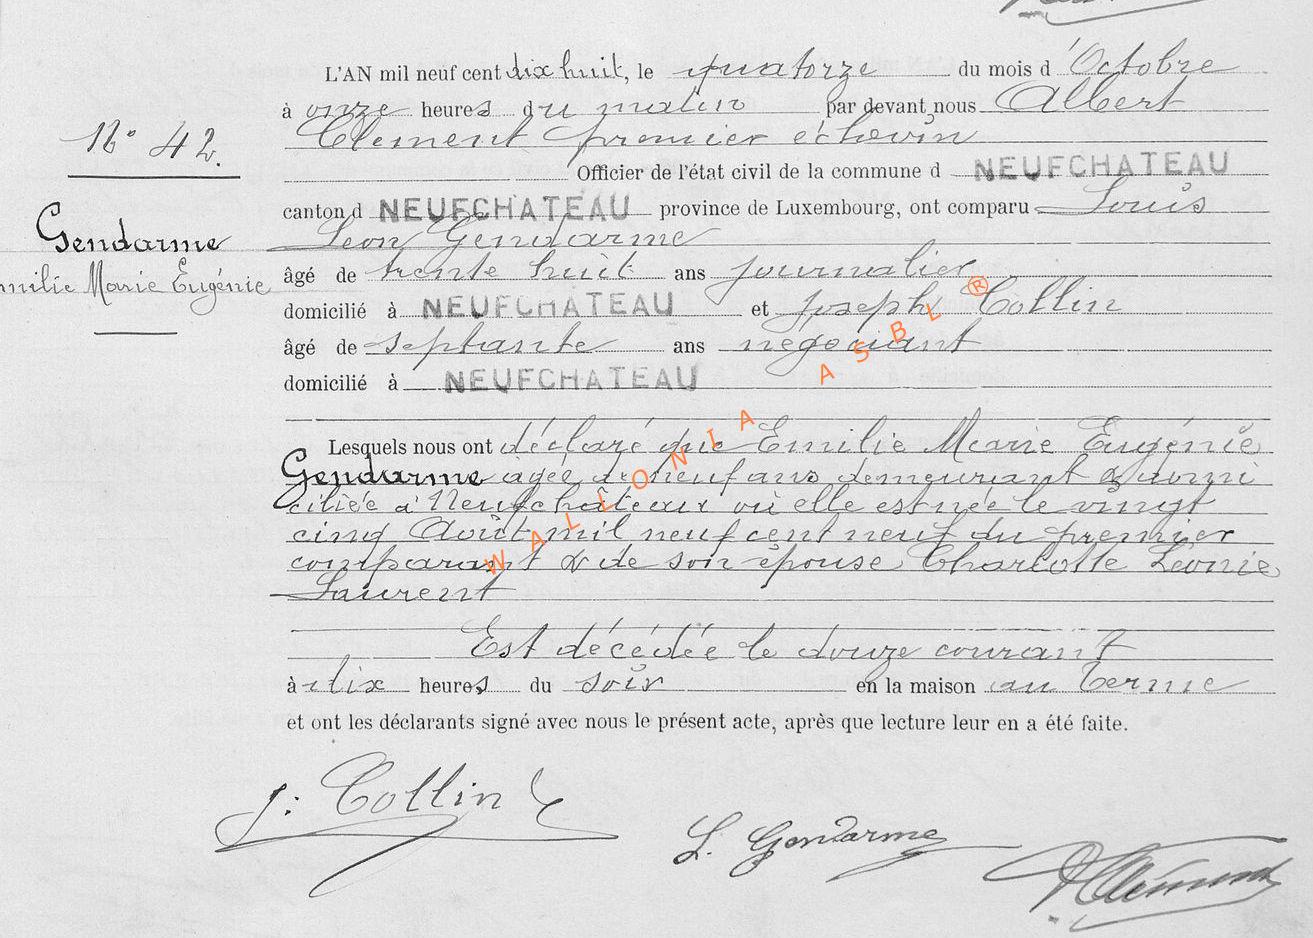 L'AN mil neuf cent dix huit, le quatorze du mois d'Octobre
à onze heures du matin par devant nous Albert
Clement premier échevin
N° 42.
Officier de l'état civil de la commune d NEUFCHATEAU
canton d NEUFCHATEAU province de Luxembourg, ont comparu Louis
Gendarme
Leon Gendarme
milie Marie Eugénie
âgé de trente huit ans journalier
domicilié à NEUFCHATEAU et Joseph Collin
âgé de septante ans negociant
domicilié à NEUFCHATEAU
Lesquels nous ont déclaré que Emilie Marie Eugénie
Gendarme agée de neuf ans demeurant & domi
ciliée à Neufchâteau où elle est née le vingt
cinq Août mil neuf cent neuf du premier
comparant & de son épouse Charlotte Leonie
Laurent
Est décédée le douze courant
à dix heures du soir en la maison au Terme
et ont les déclarants signé avec nous le présent acte, après que lecture leur en a été faite.
J: Collin
L. Gendarme
AClément
WALLONIA ASBL ®